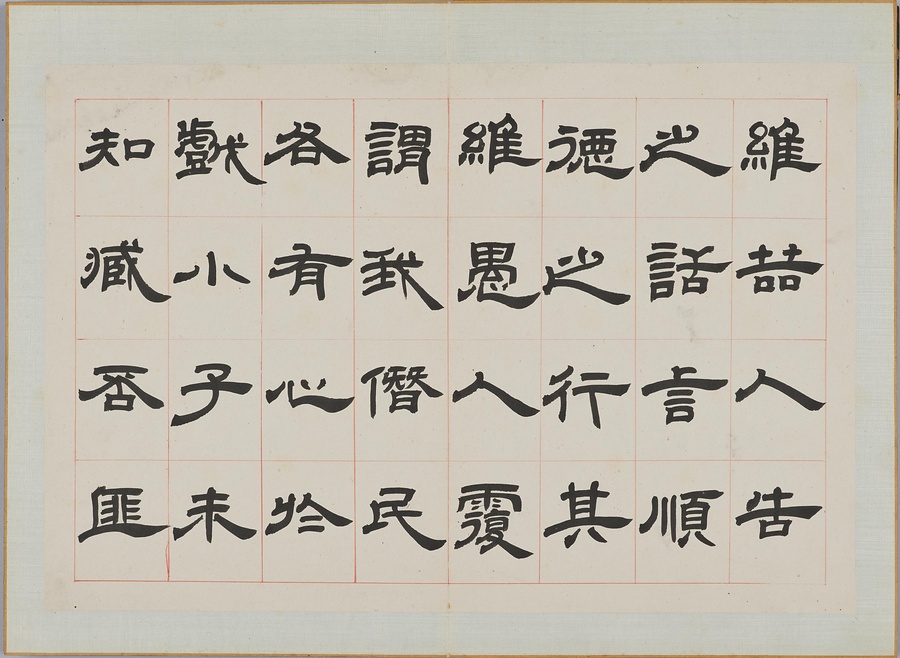 維喆人告
之話言順
德之行其
維愚人覆
謂我僭民
各有心於
戲小子未
知臧否匪